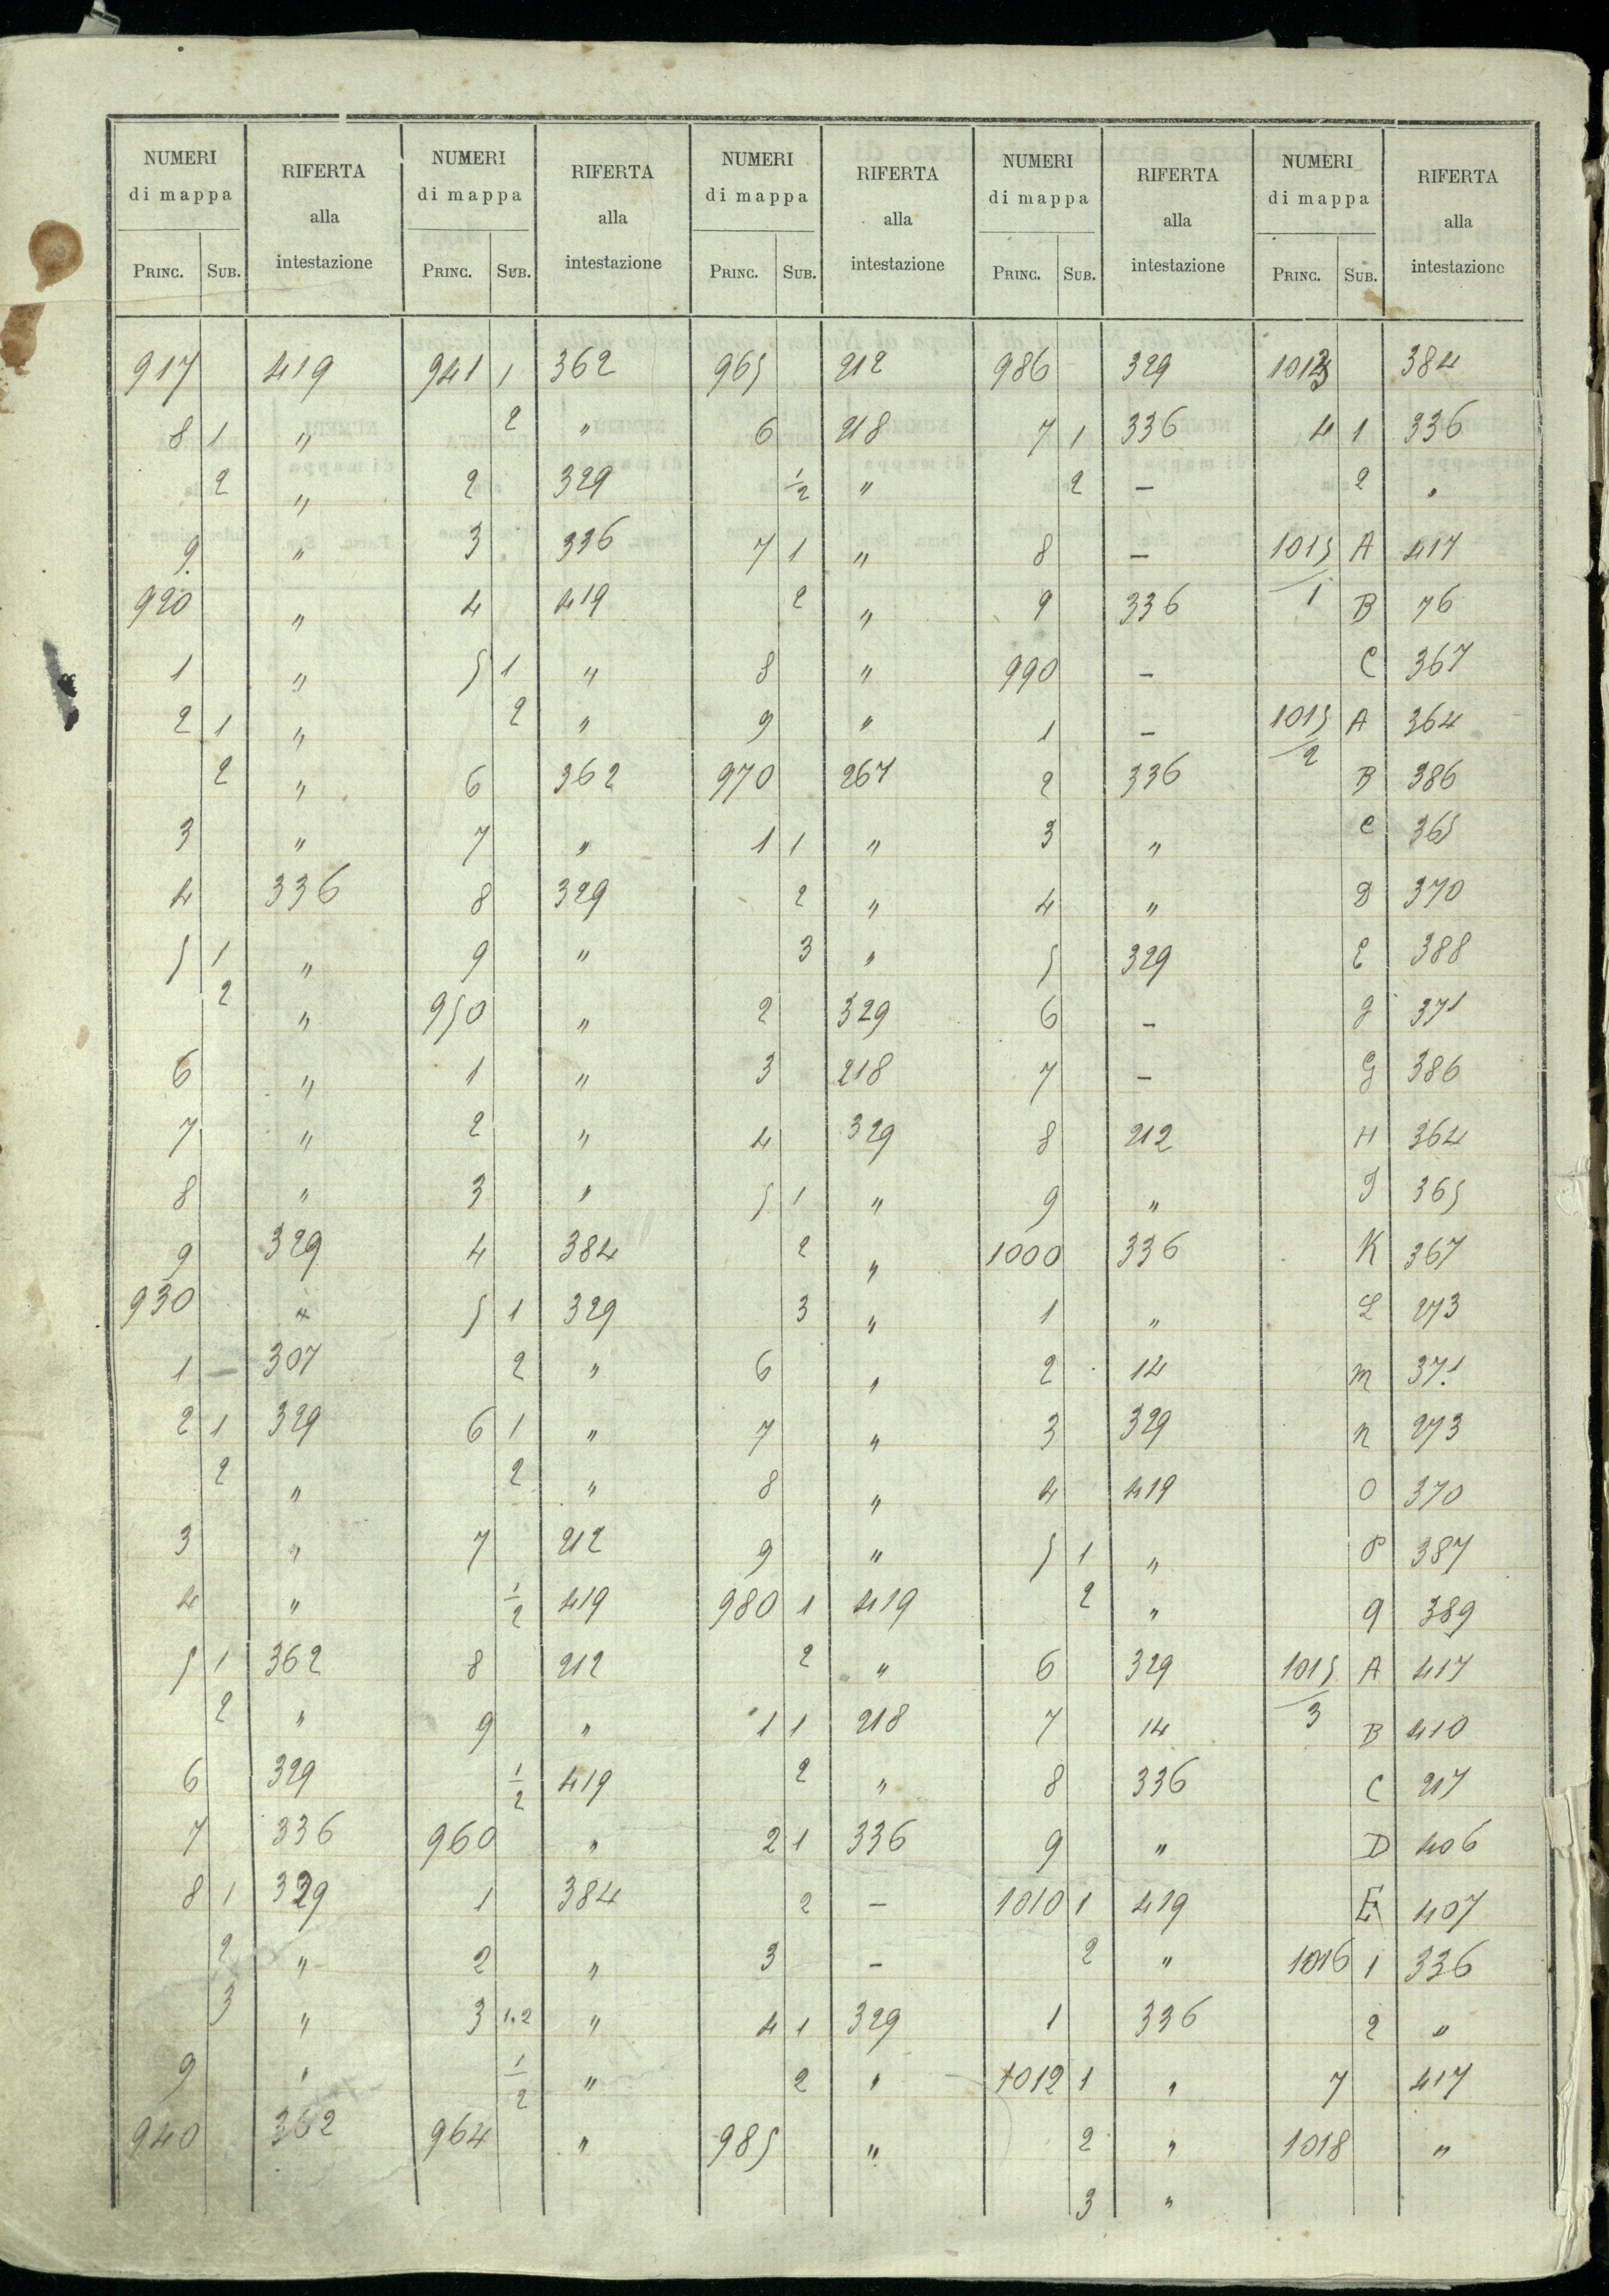 NUMERI di mappa | RIFERTA alla intestazione | NUMERI di mappa | RIFERTA alla intestazione | NUMERI di mappa | RIFERTA alla intestazione | NUMERI di mappa | RIFERTA alla intestazione | NUMERI di mappa | RIFERTA alla intestazione
PRINC. | SUB. | PRINC. | SUB. | PRINC. | SUB. | PRINC. | SUB. | PRINC. | SUB.
917 | | 419 | 941 | 1 | 362 | 965 | | 212 | 986 | | 329 | 1013 | | 384
8 | 1 | " | | 2 | " | 6 | | 218 | 7 | 1 | 336 | 4 | 1 | 336
| 2 | " | 2 | | 329 | | 1/2 | " | | 2 | – | | 2 | "
9 | | " | 3 | | 336 | 7 | 1 | " | 8 | | – | 1015/1 | A | 417
920 | | " | 4 | | 419 | | 2 | " | 9 | | 336 | | B | 76
1 | | " | 5 | 1 | " | 8 | | " | 990 | | – | | C | 367
2 | 1 | " | | 2 | " | 9 | | " | 1 | | – | 1015/2 | A | 364
| 2 | " | 6 | | 362 | 970 | | 267 | 2 | | 336 | | B | 386
3 | | " | 7 | | " | 1 | 1 | " | 3 | | " | | C | 365
4 | | 336 | 8 | | 329 | | 2 | " | 4 | | " | | D | 370
5 | 1 | " | 9 | | " | | 3 | " | 5 | | 329 | | E | 388
| 2 | " | 950 | | " | 2 | | 329 | 6 | | – | | | 371
6 | | " | 1 | | " | 3 | | 218 | 7 | | – | | G | 386
7 | | " | 2 | | " | 4 | | 329 | 8 | | 212 | | H | 364
8 | | " | 3 | | " | 5 | 1 | " | 9 | | " | | I | 365
9 | | 329 | 4 | | 384 | | 2 | " | 1000 | | 336 | | K | 367
930 | | " | 5 | 1 | 329 | | 3 | " | 1 | | " | | L | 273
1 | – | 307 | | 2 | " | 6 | | " | 2 | | 14 | | m | 371
2 | 1 | 329 | 6 | 1 | " | 7 | | " | 3 | | 329 | | n | 273
| 2 | " | | 2 | " | 8 | | " | 4 | | 419 | | O | 370
3 | | " | 7 | | 212 | 9 | | " | 5 | 1 | " | | P | 387
4 | | " | | 1/2 | 419 | 980 | 1 | 419 | | 2 | " | | q | 389
5 | 1 | 362 | 8 | | 212 | | 2 | " | 6 | | 329 | 1015/3 | A | 417
| 2 | " | 9 | | " | 1 | 1 | 218 | 7 | | 14 | | B | 410
6 | | 329 | | 1/2 | 419 | | 2 | " | 8 | | 336 | | C | 217
7 | | 336 | 960 | | " | 2 | 1 | 336 | 9 | | " | | D | 406
8 | 1 | 329 | 1 | | 384 | | 2 | – | 1010 | 1 | 419 | | E | 407
| 2 | " | 2 | | " | 3 | | – | | 2 | " | 1016 | 1 | 336
| 3 | " | 3 | 1.2 | " | 4 | 1 | 329 | 1 | | 336 | | 2 | "
9 | | " | | 1/2 | " | | 2 | " | 1012 | 1 | " | 7 | | 417
940 | | 362 | 964 | | " | 985 | | " | | 2 | " | 1018 | | "
| | | | | | | | | | 3 | "